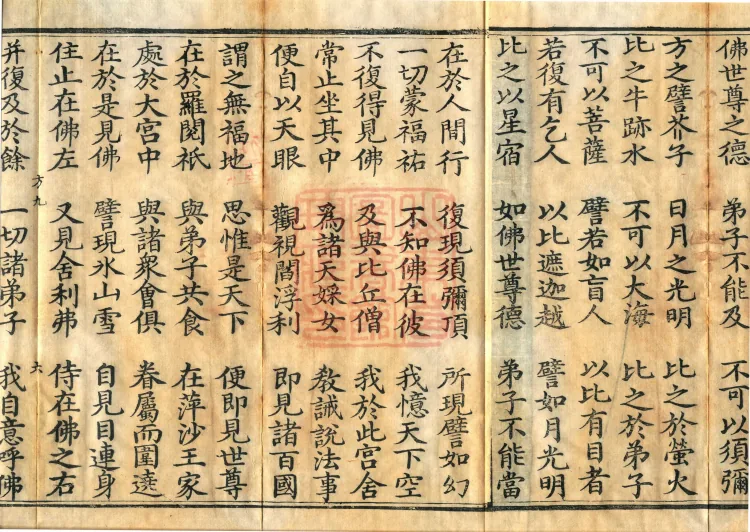 佛世尊之德 弟子不能及 不可以須彌
方之譬芥子 日月之光明 比之於螢火
比之牛跡水 不可以大海 比之於弟子
不可以菩薩 譬若如盲人 以比有目者
若復有乞人 以比遮迦越 譬如月光明
比之以星宿 如佛世尊德 弟子不能當
在於人間行 復現須彌頂 所現譬如幻
一切蒙福祐 不知佛在彼 我憶天下空
不復得見佛 及與比丘僧 我於此宮舍
常止坐其中 爲諸天婇女 教誡說法事
便自以天眼 觀視閻浮利 即見諸百國
謂之無福地 思惟是天下 便即見世尊
在於羅閱祇 與弟子共食 在萍沙王家
處於大宮中 與諸衆會俱 眷屬而圍遶
在於是見佛 譬現氷山雪 自見目連身
住止在佛左 又見舍利弗 侍在佛之右
方九 六
并復及於餘 一切諸弟子 我自意呼佛